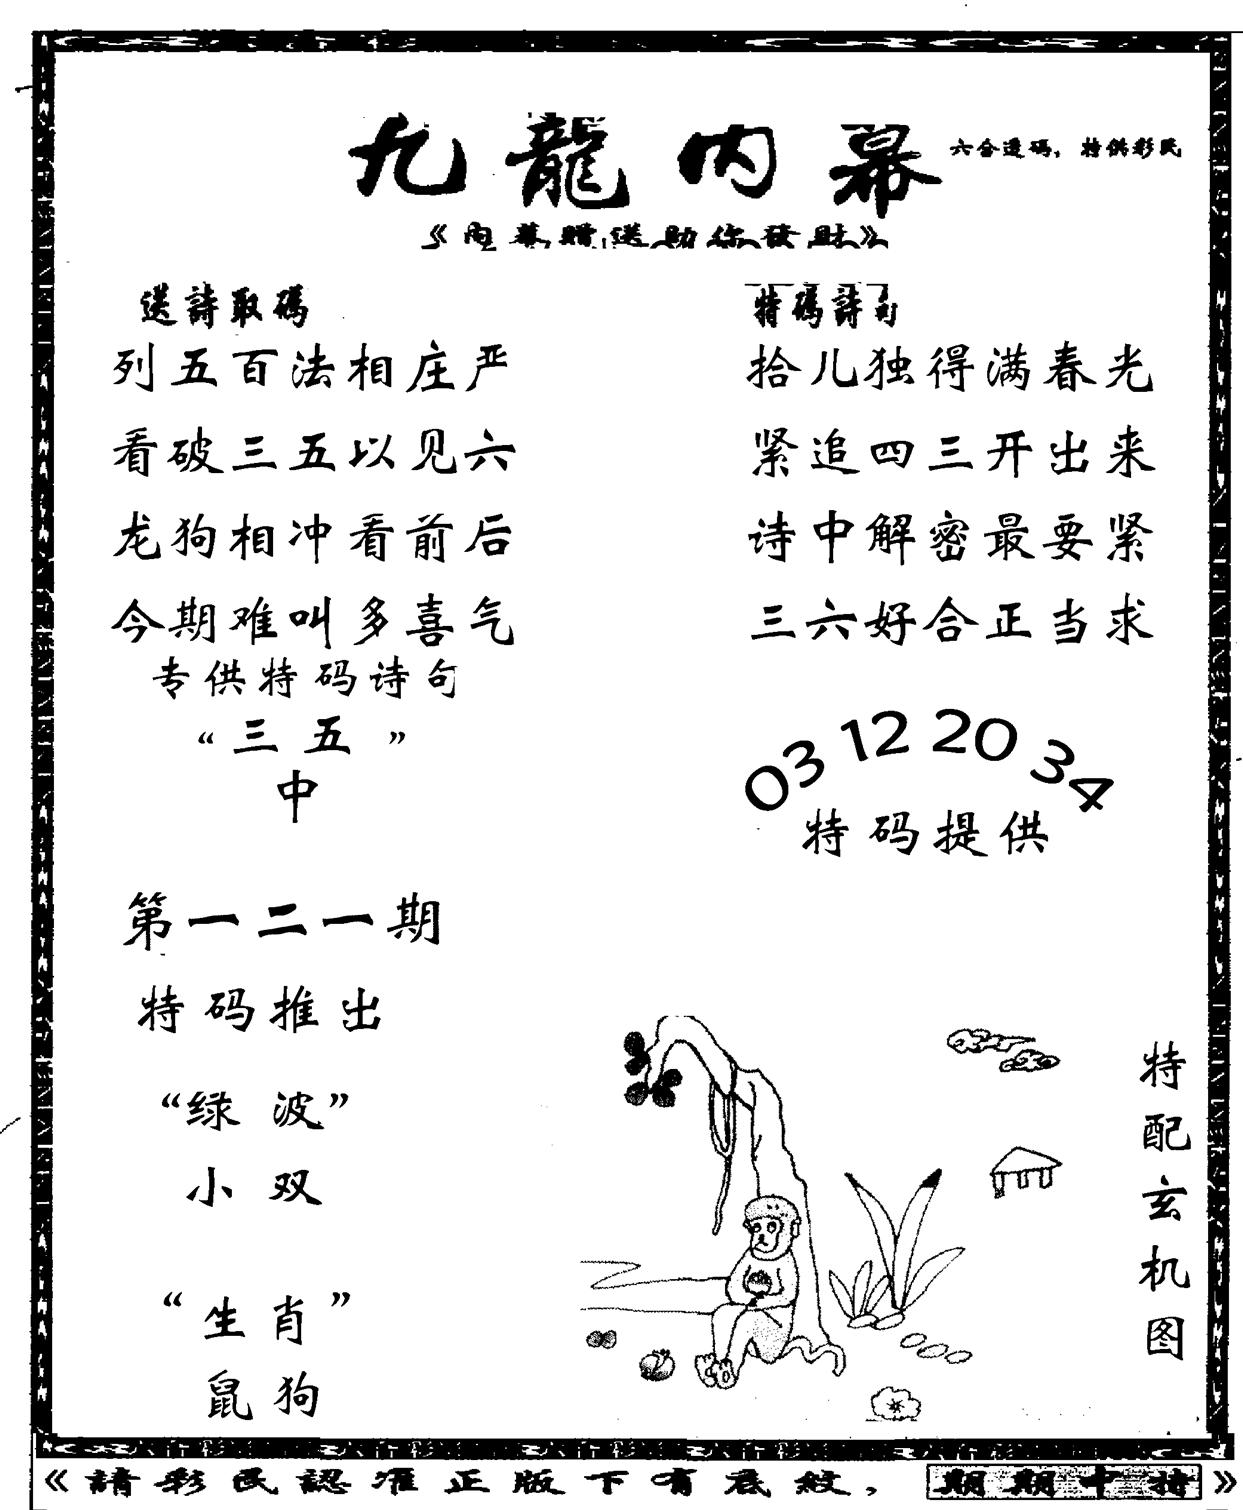 九龍内幕
六合透码，特供彩民
《内幕贈送助你發財》
送詩取碼
列五百法相庄严
看破三五以见六
龙狗相冲看前后
今期难叫多喜气
专供特码诗句
“三五”
中
特碼詩句
拾儿独得满春光
紧追四三开出来
诗中解密最要紧
三六好合正当求
03 12 20 34
特码提供
第一二一期
特码推出
“绿波”
小双
“生肖”
鼠狗
特配玄机图
《請彩民認准正版下有底紋，期期中特》